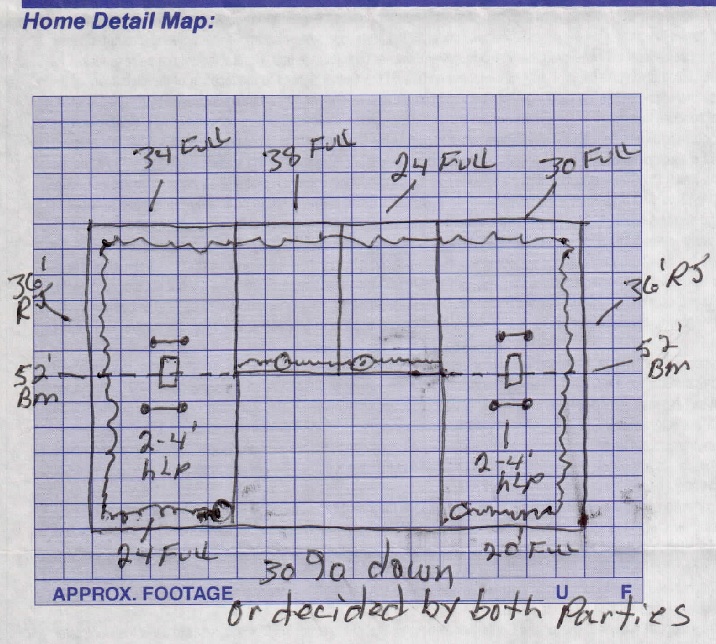 Home Detail Map:
34 Full 38 Full 24 Full 30 Full
36' RJ 36' RJ
52' Bm 52' Bm
2-4' hLp 2-4' hLp
24 Full 20' Full
30% down
APPROX. FOOTAGE U F
or decided by both Parties